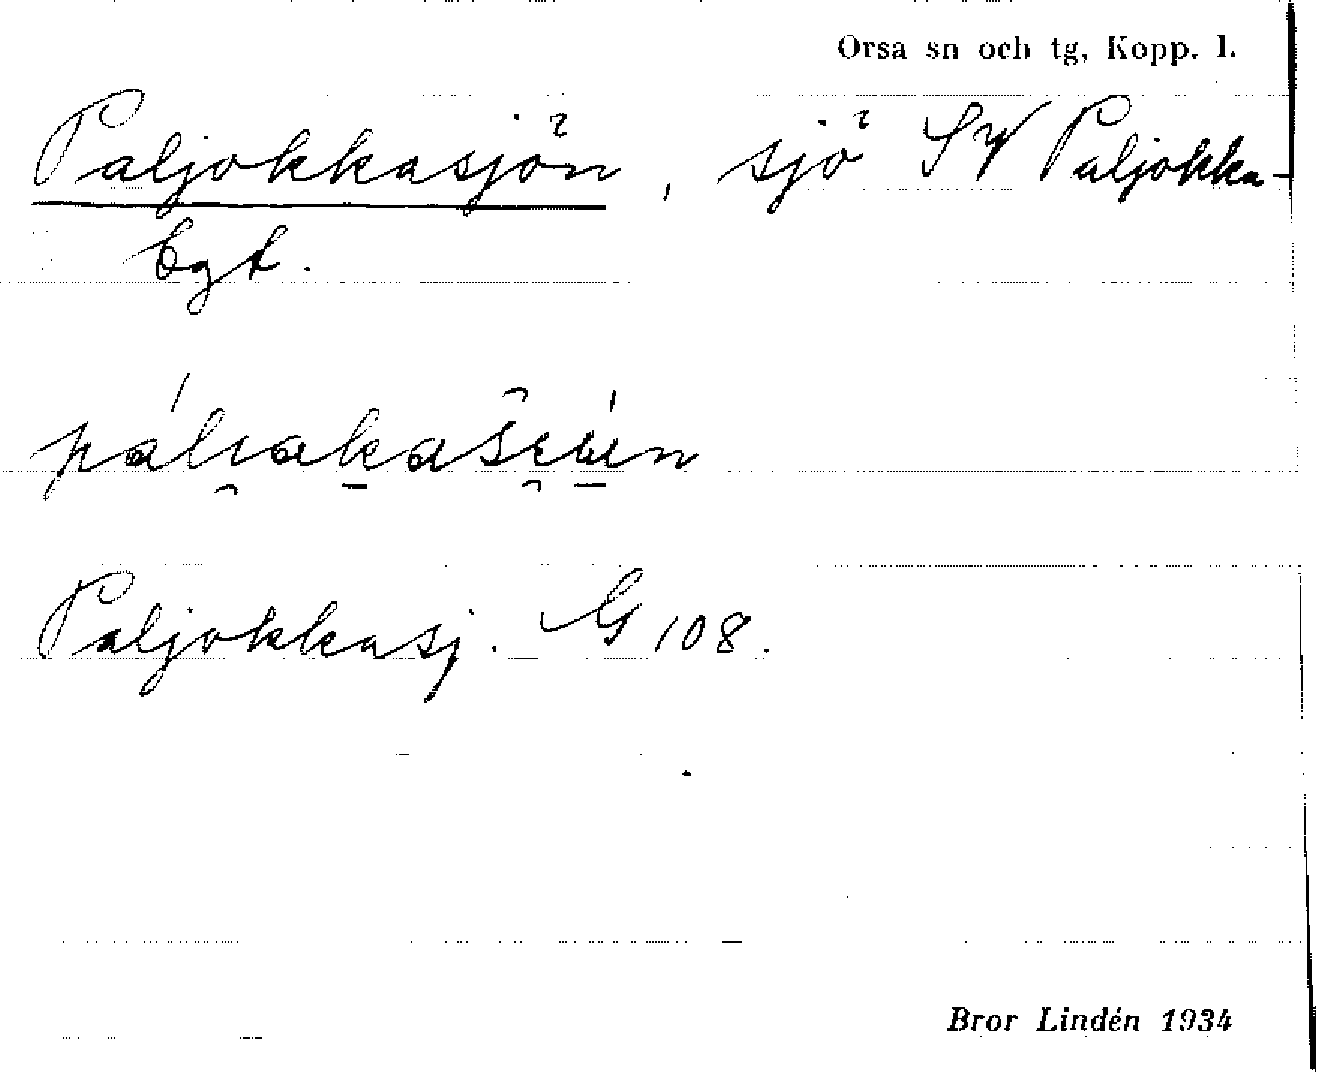 Orsa sn och tg, Kopp. l.
Paljokkasjön, sjö SV Paljokka-
bgt.
Paljokkasj. G 108.
Bror Lindén 1934